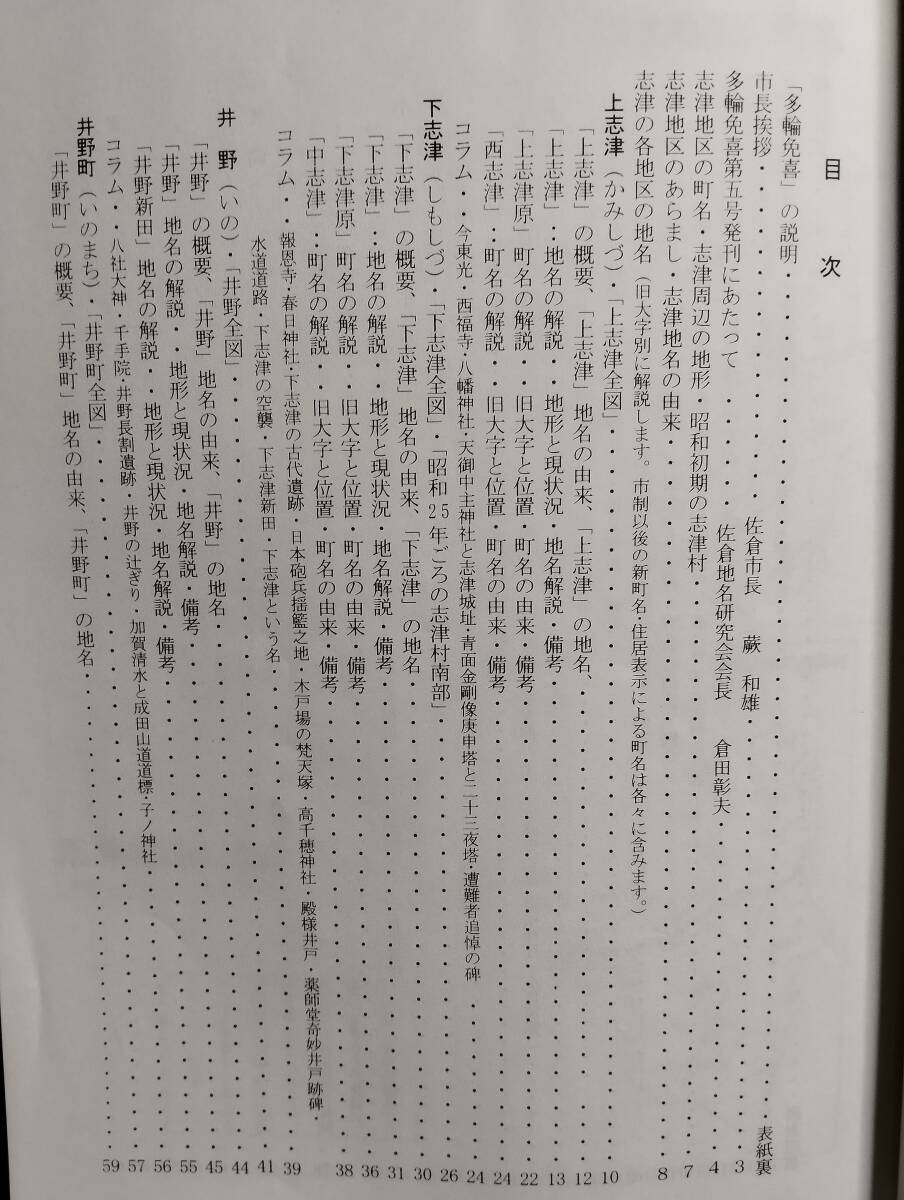 目　次
「多輪免喜」の説明・・・・・・・・・・・・・・・・・・・・表紙裏
市長挨拶・・・・・・・・・・・・佐倉市長　蕨　和雄・・・・・・・・・・3
多輪免喜第五号発刊にあたって・・・・・佐倉地名研究会会長　倉田彰夫・・・・・・・・4
志津地区の町名・志津周辺の地形・昭和初期の志津村・・・・・・・・・・・・・7
志津地区のあらまし・志津地名の由来・・・・・・・・・・・・・・・・8
志津の各地区の地名（旧大字別に解説します。市制以後の新町名・住居表示による町名は各々に含みます。）
上志津（かみしづ）・「上志津全図」・・・・・・・・・・・・・・・・10
「上志津」の概要、「上志津」地名の由来、「上志津」の地名、・・・・・・・・・・12
「上志津」：地名の解説・・地形と現状況・地名解説・備考・・・・・・・・・・13
「上志津原」町名の解説・・旧大字と位置・町名の由来・備考・・・・・・・・・・22
「西志津」：町名の解説・・旧大字と位置・町名の由来・備考・・・・・・・・・・24
コラム・・今東光・西福寺・八幡神社・天御中主神社と志津城址・青面金剛像庚申塔と二十三夜塔・遭難者追悼の碑・・・・・24
下志津（しもしづ）・「下志津全図」・「昭和25年ごろの志津村南部」・・・・・・・・・・26
「下志津」の概要、「下志津」地名の由来、「下志津」の地名・・・・・・・・・・30
「下志津」：地名の解説・・地形と現状況・地名解説・備考・・・・・・・・・・31
「下志津原」町名の解説・・旧大字と位置・町名の由来・備考・・・・・・・・・・36
「中志津」：町名の解説・・旧大字と位置・町名の由来・備考・・・・・・・・・・38
コラム・・報恩寺・春日神社・下志津の古代遺跡・日本砲兵揺籃之地・木戸場の梵天塚・高千穂神社・殿様井戸・薬師堂奇妙井戸跡碑・
水道道路・下志津の空襲・下志津新田・下志津という名・・・・・・・・・・39
井　野（いの）・「井野全図」・・・・・・・・・・・・・・・・41
「井野」の概要、「井野」地名の由来、「井野」の地名・・・・・・・・・・・・44
「井野」地名の解説・・地形と現状況・地名解説・備考・・・・・・・・・・・・45
「井野新田」地名の解説・・地形と現状況・地名解説・備考・・・・・・・・・・55
コラム・・八社大神・千手院・井野長割遺跡・井野の辻ぎり・加賀清水と成田山道道標・子ノ神社・・・・・・・・56
井野町（いのまち）・「井野町全図」・・・・・・・・・・・・・・・・57
「井野町」の概要、「井野町」地名の由来、「井野町」の地名・・・・・・・・・・59